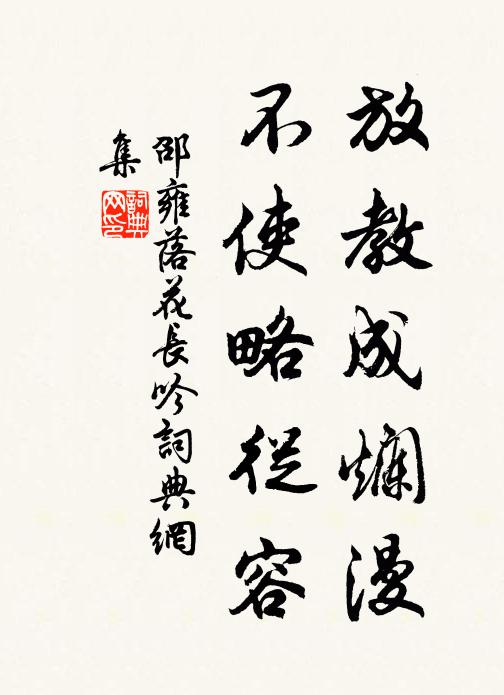 放教成爛漫
不使略從容
邵雍落花長吟詞典網
集
詞典網印